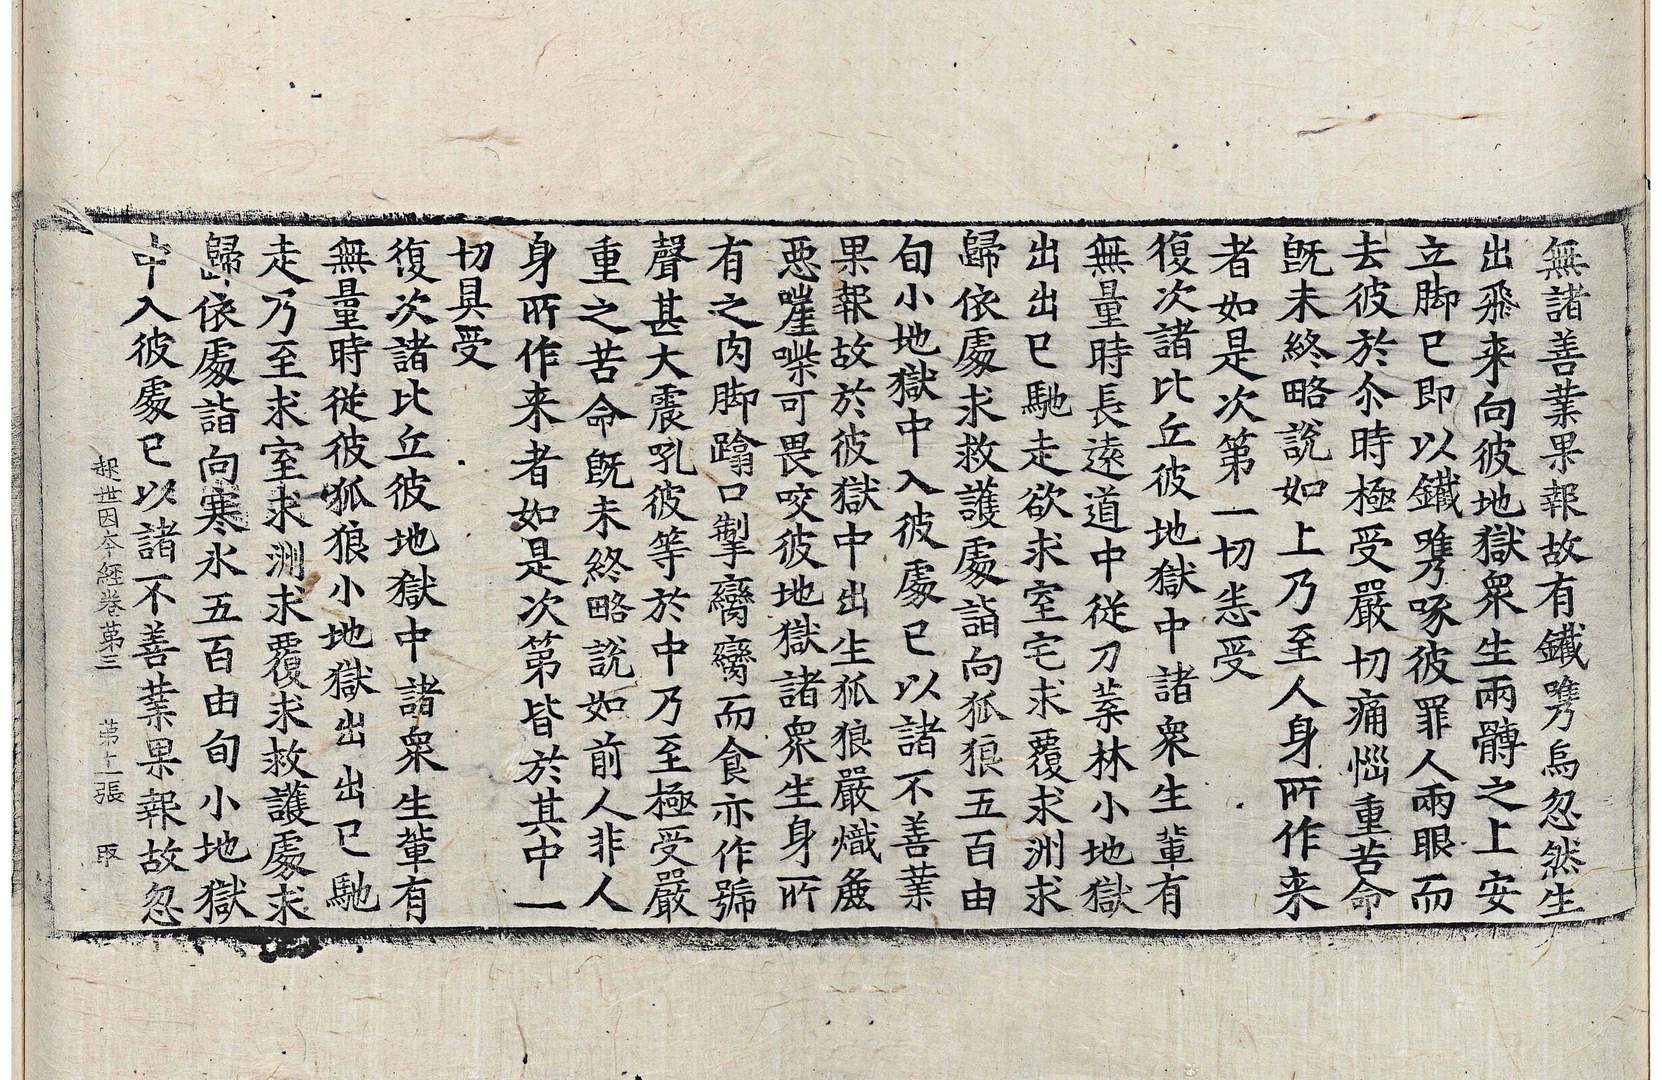 無諸善業果報故有鐵㭰烏忽然生
出飛来向彼地獄衆生兩髆之上安
立脚已即以鐵㭰啄彼罪人兩眼而
去彼於尒時極受嚴切痛惱重苦命
旣未終略說如上乃至人身所作来
者如是次第一切悉受
復次諸比丘彼地獄中諸衆生軰有
無量時長遠道中従刀葉林小地獄
出出已馳走欲求室宅求覆求洲求
歸依處求救護處詣向狐狼五百由
旬小地獄中入彼處已以諸不善業
果報故於彼獄中出生狐狼嚴熾麁
惡嘊喍可畏咬彼地獄諸衆生身所
有之肉脚蹹口掣臠臠而食亦作號
聲甚大震吼彼等於中乃至極受嚴
重之苦命旣未終略說如前人非人
身所作来者如是次第皆於其中一
切具受
復次諸比丘彼地獄中諸衆生軰有
無量時従彼狐狼小地獄出出已馳
走乃至求室求洲求覆求救護處求
歸依處詣向寒氷五百由旬小地獄
中入彼處已以諸不善業果報故忽
起世因本經卷第三 第十二張 取